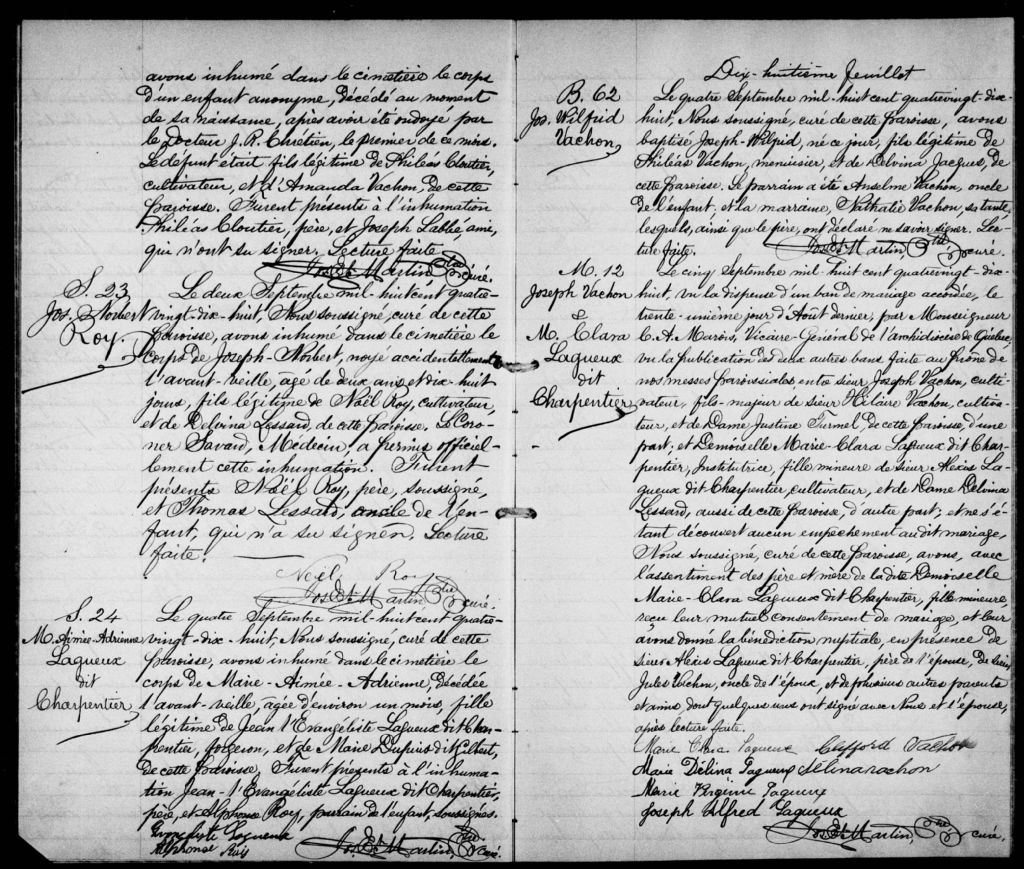 avons inhumé dans le cimetière le corps
d'un enfant anonyme, décédé au moment
de sa naissance, après avoir été ondoyé par
le Docteur J. R. Chrétien, le premier de ce mois.
Le défunt était fils légitime de Philéas Cloutier,
cultivateur, et d'Amanda Vachon, de cette
paroisse. Furent présents à l'inhumation
Philéas Cloutier, père, et Joseph Labbé, ami,
qui n'ont su signer. Lecture faite.
Jos. Et. Martin, Ptre curé.
S. 23
Jos. Norbert
Roy.
Le deux Septembre mil-huit cent quatre-
vingt-dix-huit, Nous soussigné, curé de cette
paroisse, avons inhumé dans le cimetière le
corps de Joseph-Norbert, noyé accidentellement
l'avant-veille, âgé de deux ans et dix-huit
jours, fils légitime de Noël Roy, cultivateur,
et de Delvina Lessard, de cette paroisse. Le Coro-
ner Savard, Médecin, a permis officiel-
lement cette inhumation. Furent
présents Noël Roy, père, soussigné,
et Thomas Lessard, oncle de l'en-
fant, qui n'a su signer. Lecture
faite.
Noël Roy
Jos. Et. Martin, Ptre curé.
S. 24
M. Aimée-Adrienne
Lagueux
dit
Charpentier
Le quatre Septembre mil-huit cent quatre-
vingt-dix-huit, Nous soussigné, curé de cette
paroisse, avons inhumé dans le cimetière le
corps de Marie-Aimée-Adrienne, décédée
l'avant-veille, âgée d'environ un mois, fille
légitime de Jean l'Evangéliste Lagueux dit Char-
pentier, forgeron, et de Marie Dupuis dit Gilbert,
de cette paroisse. Furent présents à l'inhuma-
tion Jean-l'Evangéliste Lagueux dit Charpentier,
père, et Alphonse Roy, parrain de l'enfant, soussignés.
Lagueux
Alphonse Roy
Jos. Et. Martin, Ptre curé.
Dix-huitième Feuillet
B. 62
Jos. Wilfrid
Vachon
Le quatre Septembre mil-huit cent quatrevingt-dix-
huit, Nous soussigné, curé de cette paroisse, avons
baptisé Joseph-Wilfrid, né ce jour, fils légitime de
Philéas Vachon, menuisier, et de Delvina Jacques, de
cette paroisse. Le parrain a été Anselme Vachon, oncle
de l'enfant, et la marraine, Nathalie Vachon, sa tante,
lesquels, ainsi que le père, ont déclaré ne savoir signer. Lec-
ture faite.
Jos. Et. Martin, Ptre curé.
M. 12
Joseph Vachon
&
M. Clara
Lagueux
dit
Charpentier
Le cinq Septembre mil-huit cent quatrevingt-dix-
huit, vu la dispense d'un ban de mariage accordée, le
trente-unième jour d'Août dernier, par Monseigneur
C. A. Marois, Vicaire-Général de l'archidiocèse de Québec,
vu la publication des deux autres bans faite au prône de
nos messes paroissiales, entre sieur Joseph Vachon, culti-
vateur, fils majeur de sieur Hilaire Vachon, cultiva-
teur, et de Dame Justine Turmel, de cette paroisse, d'une
part, et Demoiselle Marie-Clara Lagueux dit Char-
pentier, Institutrice, fille mineure de Sieur Alexis La-
gueux dit Charpentier, cultivateur, et de Dame Delvina
Lessard, aussi de cette paroisse, d'autre part; et ne s'é-
tant découvert aucun empêchement au dit mariage,
Nous soussigné, curé de cette paroisse, avons, avec
l'assentiment des père et mère de la dite Demoiselle
Marie-Clara Lagueux dit Charpentier, fille mineure,
reçu leur mutuel consentement de mariage, et leur
avons donné la bénédiction nuptiale, en présence de
sieur Alexis Lagueux dit Charpentier, père de l'épouse, de sieur
Jules Vachon, oncle de l'époux, et de plusieurs autres parents
et amis, dont quelques uns ont signé avec Nous et l'épouse,
après lecture faite.
Marie Clara Lagueux Clifford Vachon
Marie Délina Lagueux Vachon
Marie Virginie Lagueux
Joseph Alfred Lagueux
Jos. Et. Martin, Ptre curé.